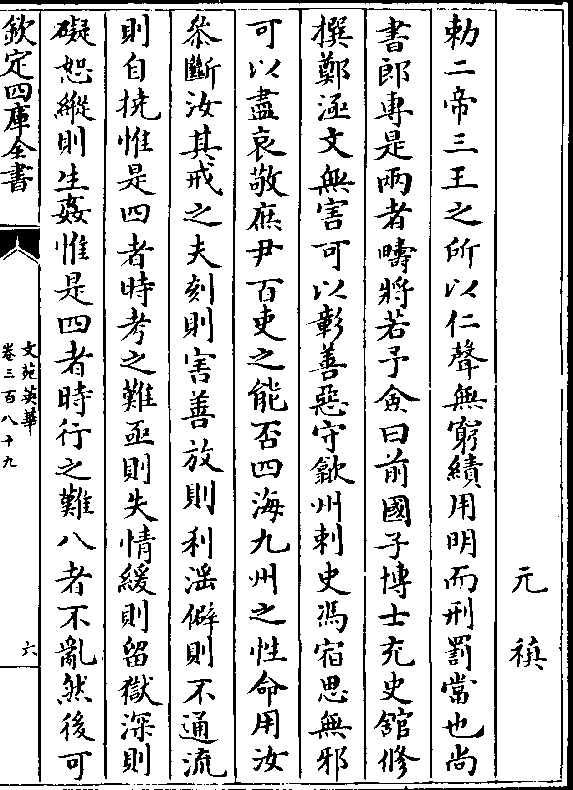 元稹
勅二帝三王之所以仁聲無窮績用明而刑罰當也尚
書郎專是兩者疇將若予僉曰前國子博士充史館修
撰鄭涵文無害可以彰善惡守歙州刺史馮宿思無邪
可以盡哀敬庶尹百吏之能否四海九州之性命用汝
叅斷汝其戒之夫刻則害善放則利淫僻則不通流
則自撓惟是四者時考之難亟則失情緩則留獄深則
礙恕縱則生姦惟是四者時行之難八者不亂然後可
欽定四庫全書
文苑英華
卷三百八十九
六